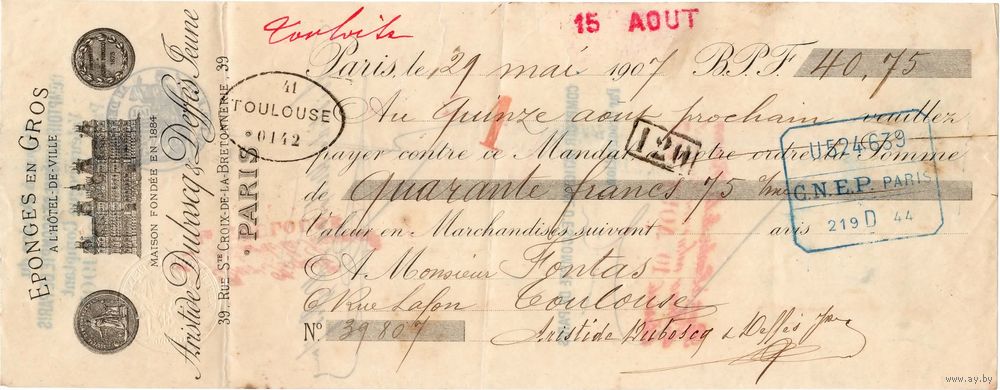 EPONGES EN GROS
A L'HÔTEL-DE-VILLE
MAISON FONDÉE EN 1884
Aristide Duboscq & Deffès Jeune
39, RUE STE CROIX-DE-LA-BRETONNERIE, 39
PARIS
15 AOUT
Toulouse
Paris, le 29 mai 1907 B.P.F. 40,75
41
TOULOUSE
0142
Au Quinze août prochain veuillez
1
payer contre ce Mandat ordre Somme
120
U524639
C.N.E.P. PARIS
219D 44
de Quarante francs 75
Valeur en Marchandises suivant avis
A Monsieur Fontas
6 Rue Lafon Toulouse
No 39807
Aristide Duboscq & Deffès Jne
www.ay.by